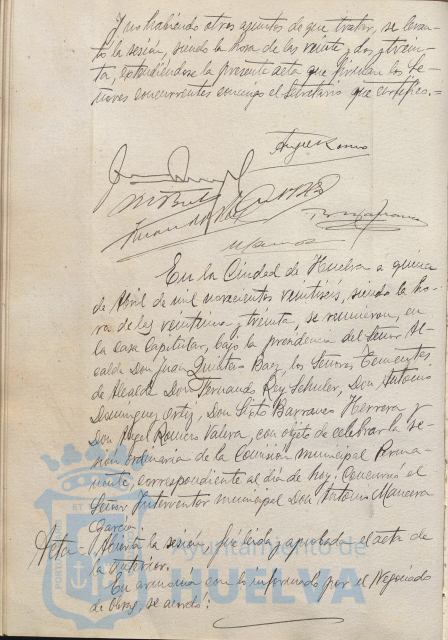 Y no habiendo otros asuntos de que tratar, se levan-
tó la sesión, siendo la hora de las veinte y dos y trein-
ta, extendiéndose la presente acta que firman los Se-
ñores concurrentes conmigo el Secretario que certifico.=
Angel Romero
En la Ciudad de Huelva a quince
de Abril de mil novecientos veintiséis, siendo la ho-
ra de las veintiuna, treinta, se reunieron, en
la casa Capitular, bajo la presidencia del Señor Al-
calde Don Juan Quintero Baez, los Señores Tenientes
de Alcalde Don Fernando Rey Schuler, Don Antonio
Domínguez Ortiz, Don Sixto Barranco Herrera y
Don Angel Romero Valera, con objeto de celebrar la se-
sión ordinaria de la Comisión municipal Perma-
nente, correspondiente al día de hoy: Concurrió el
Señor Interventor municipal Don Antonio Mancera
García.
Acta - Abierta la sesión, fué leida y aprobada el acta de
la anterior.
En armonía con lo informado por el Negociado
de Obras, se acordó:
Ayuntamiento de
HUELVA